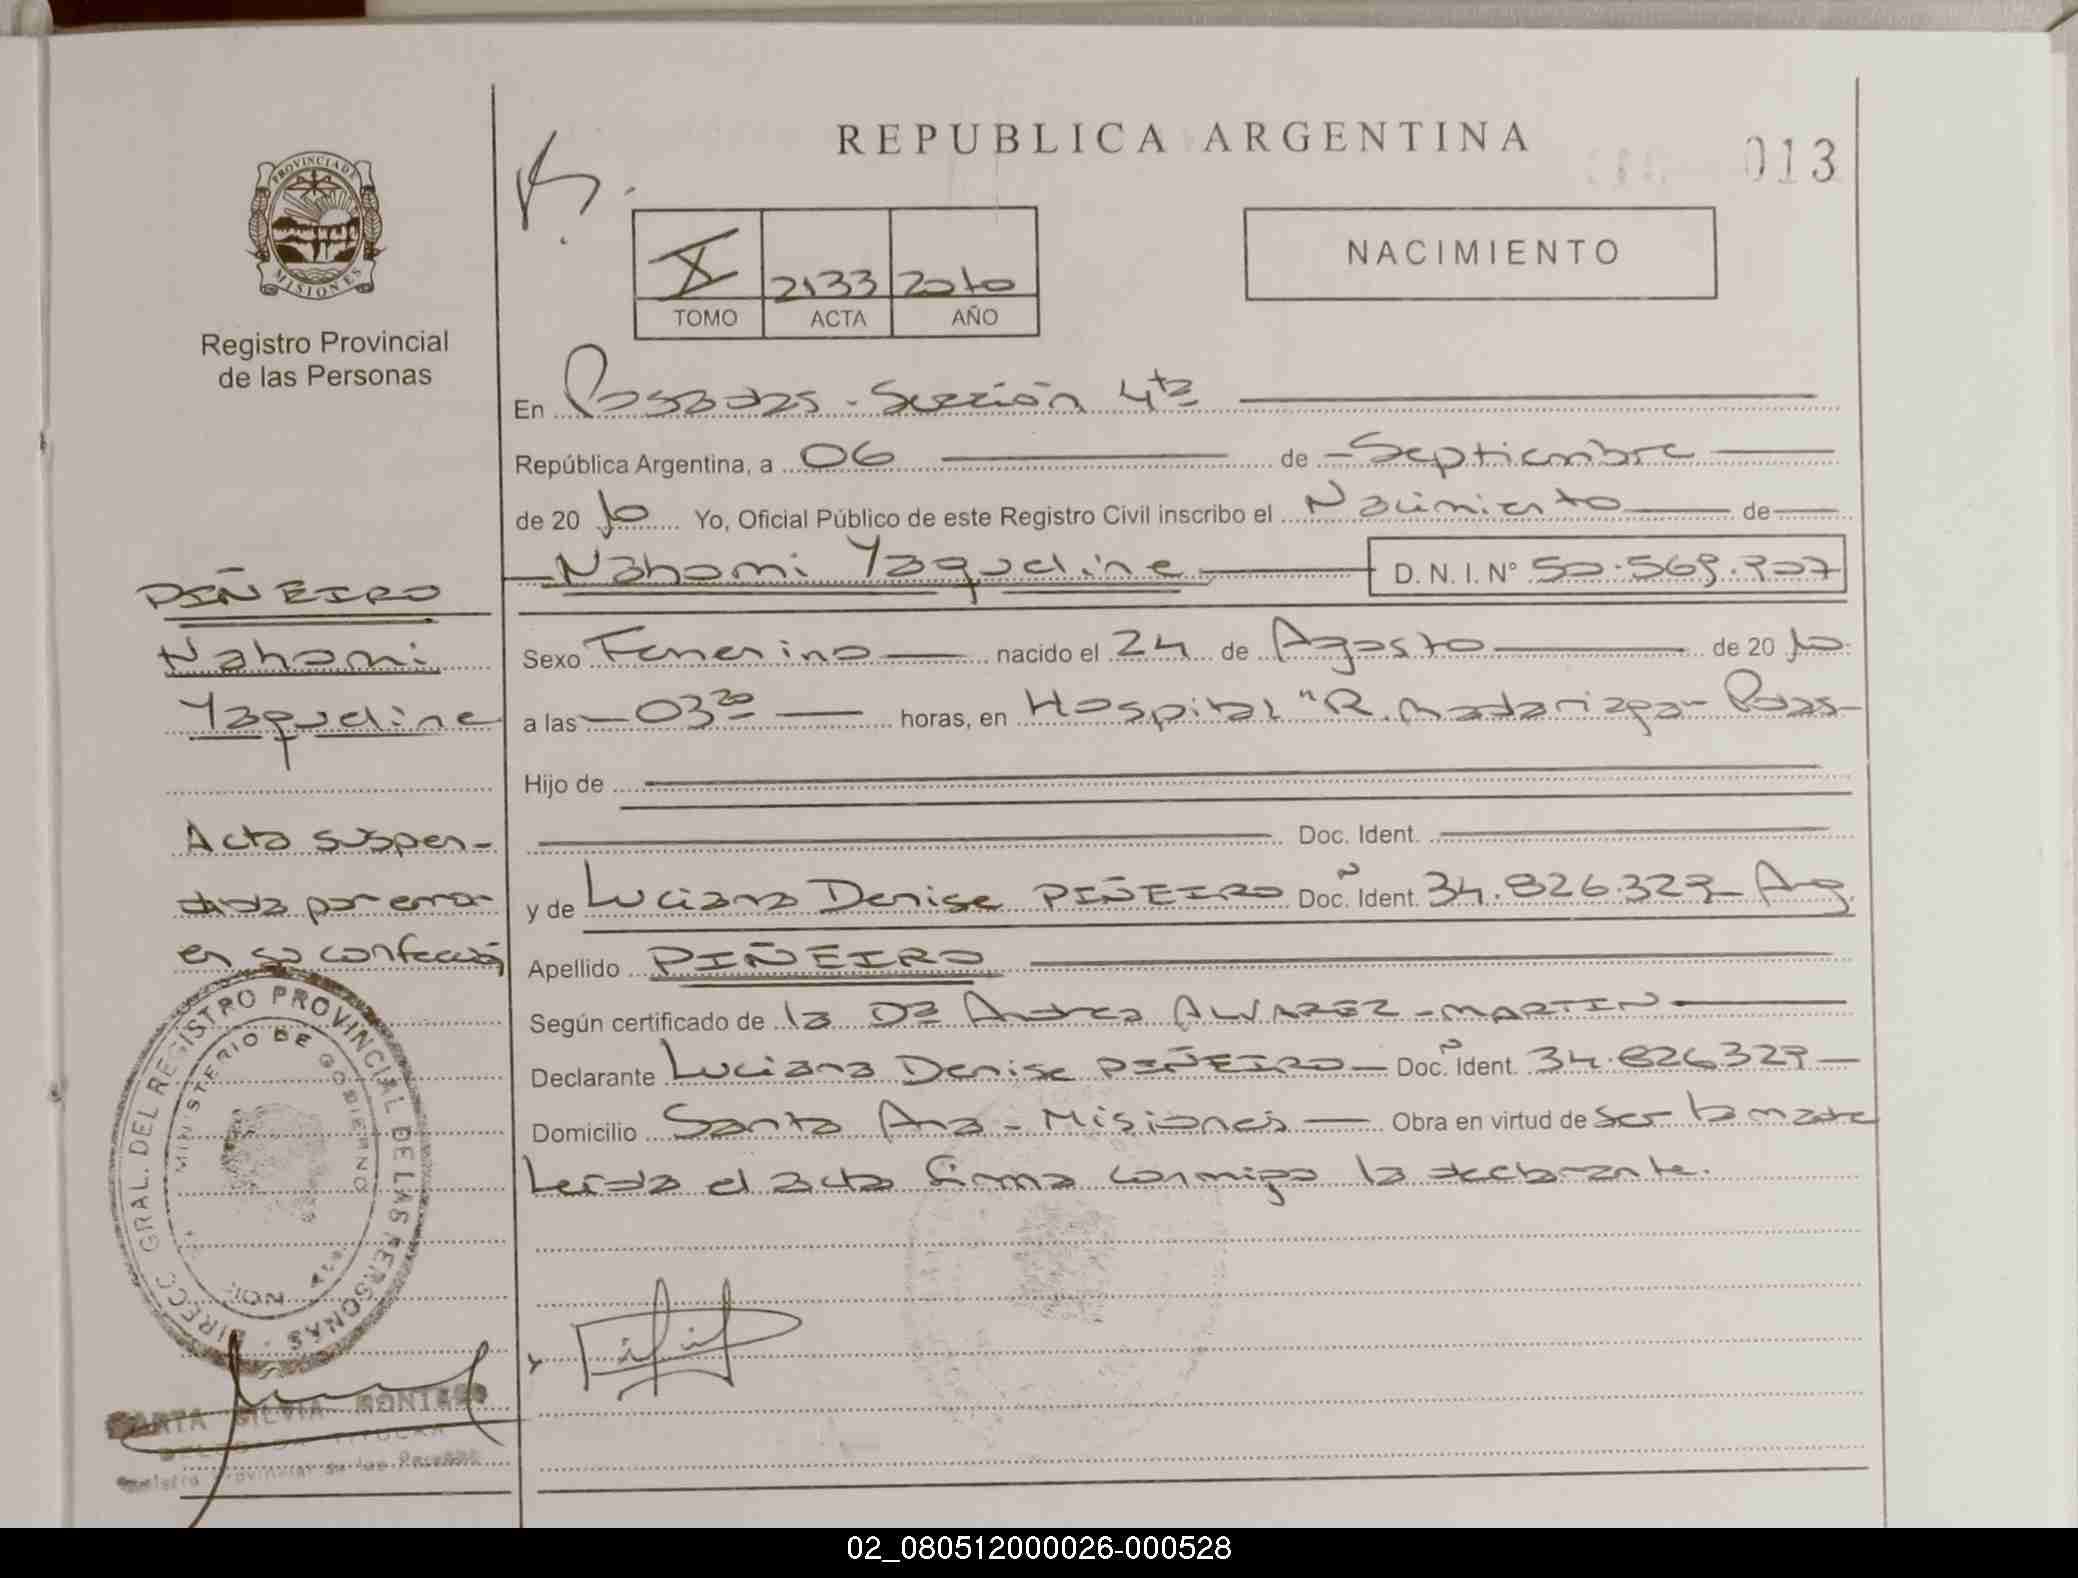 REPUBLICA ARGENTINA
013
PROVINCIA DE
MISIONES
Registro Provincial
de las Personas
X 2133 2010
TOMO ACTA AÑO
NACIMIENTO
En Posadas - Sección 4ta
República Argentina, a 06 de Septiembre
de 20 10 Yo, Oficial Público de este Registro Civil inscribo el Nacimiento de
Nahomi Yaqueline D.N.I.N° 50.569.707
PIÑEIRO
Nahomi
Yaqueline
Sexo Femenino nacido el 24 de Agosto de 20 10
a las 03 20 horas, en Hospital "R. Madariaga - Pdas
Hijo de
Doc. Ident.
y de Luciana Denise PIÑEIRO Doc. Ident. 34.826.329 - Arg.
Apellido PIÑEIRO
Según certificado de la Dra Andrea ALVAREZ - MARTIN
Declarante Luciana Denise PIÑEIRO - Doc. Ident. 34.826329
Domicilio Santa Ana - Misiones Obra en virtud de ser la madre
Leída el acta firma conmigo la declarante.
Acta suspen-
dida por error
en su confección
DIRECC. GRAL. DEL REGISTRO PROVINCIAL DE LAS PERSONAS
MINISTERIO DE GOBIERNO
MARTA SILVIA
Registro Provincial de las Personas
02_080512000026-000528